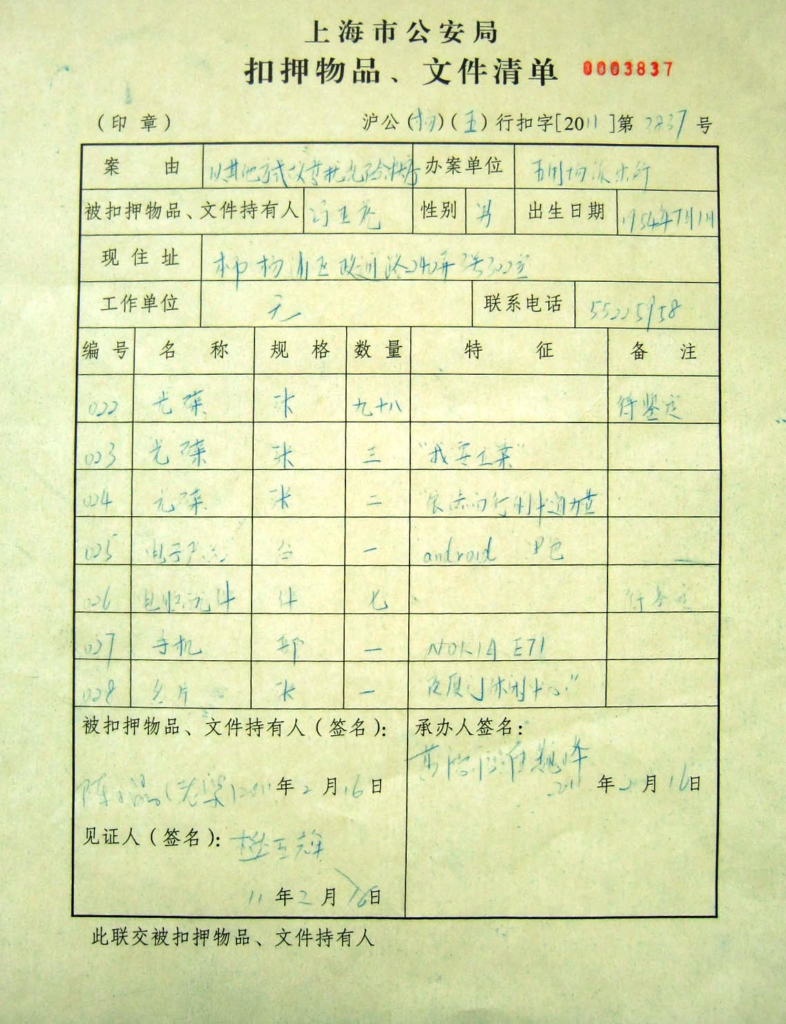 上海市公安局
扣押物品、文件清单 0003837
（印 章） 沪公（杨）（五）行扣字[2011]第3837号
案 由 以其他方式 办案单位 五角场派出所
被扣押物品、文件持有人 冯正虎 性别 男 出生日期 1954年7月1日
现 住 址 本市杨浦区政通路240弄3号302室
工作单位 无 联系电话 55225958
编 号 名 称 规 格 数 量 特 征 备 注
022 光碟 张 九十八 待鉴定
023 光碟 张 三 “我要立案”
024 光碟 张 二
025 台 一 android
026 件 七 待鉴定
027 手机 部 一 NOKIA E71
028 名片 张 一
被扣押物品、文件持有人（签名）： 承办人签名：
2011年2月16日 2011年2月16日
见证人（签名）：
11年2月16日
此联交被扣押物品、文件持有人